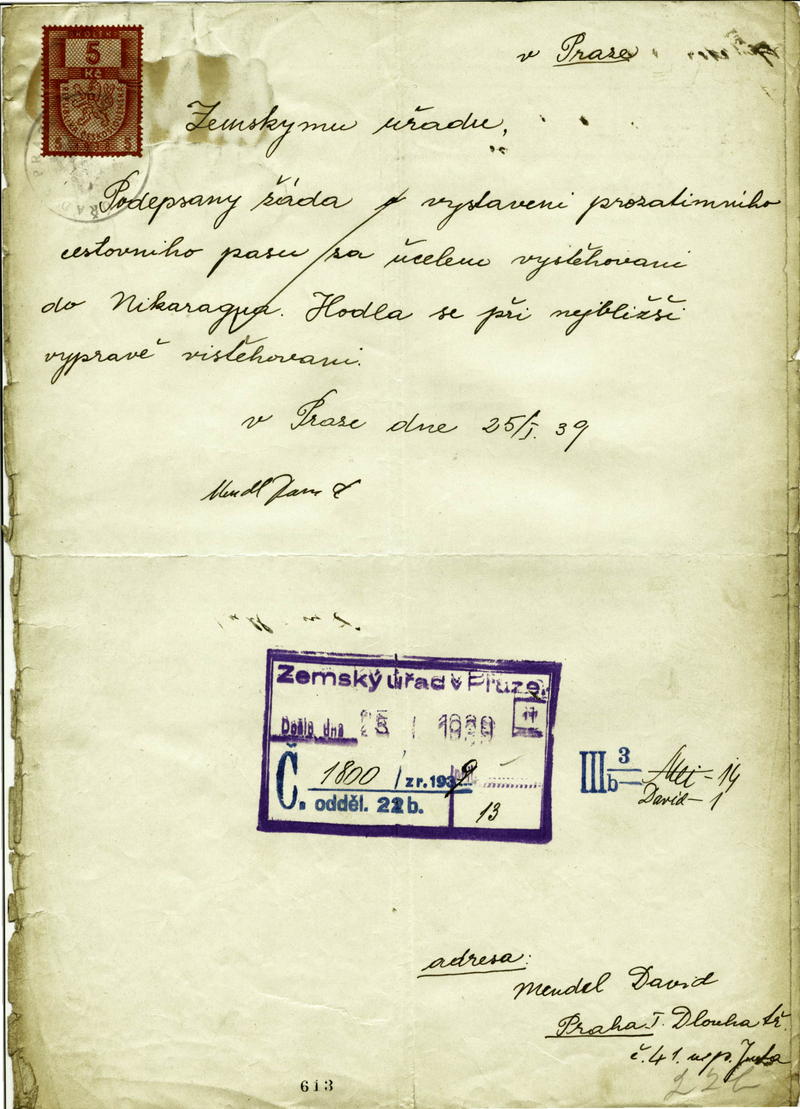 KOLEK
5
Kč
v Praze
Zemskymu uřadu,
Podepsany žáda o vystaveni prozatimniho
cestovniho pasu za účelem vystěhovani
do Nikaragua. Hodla se při nejbližši
vypravě vistěhovani.
v Praze dne 25/I. 39
Zemský úřad v Praze.
Došlo dne 25 I 1939
Č. 1800 / z r. 1939
odděl. 22 b.
13
III 3 b 14
David - 1
adresa:
Mendel David
Praha I. Dlouha tř.
č. 41.
613